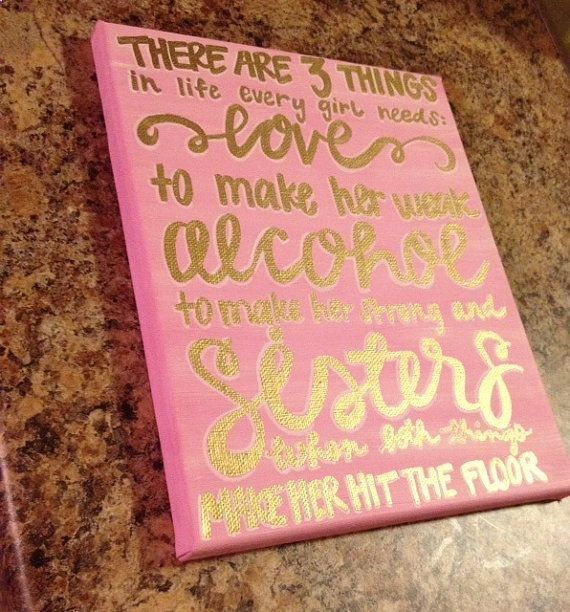 THERE ARE 3 THINGS
in life every girl needs:
love
to make her weak
alcohol
to make her strong and
Sisters
when both things
MAKE HER HIT THE FLOOR